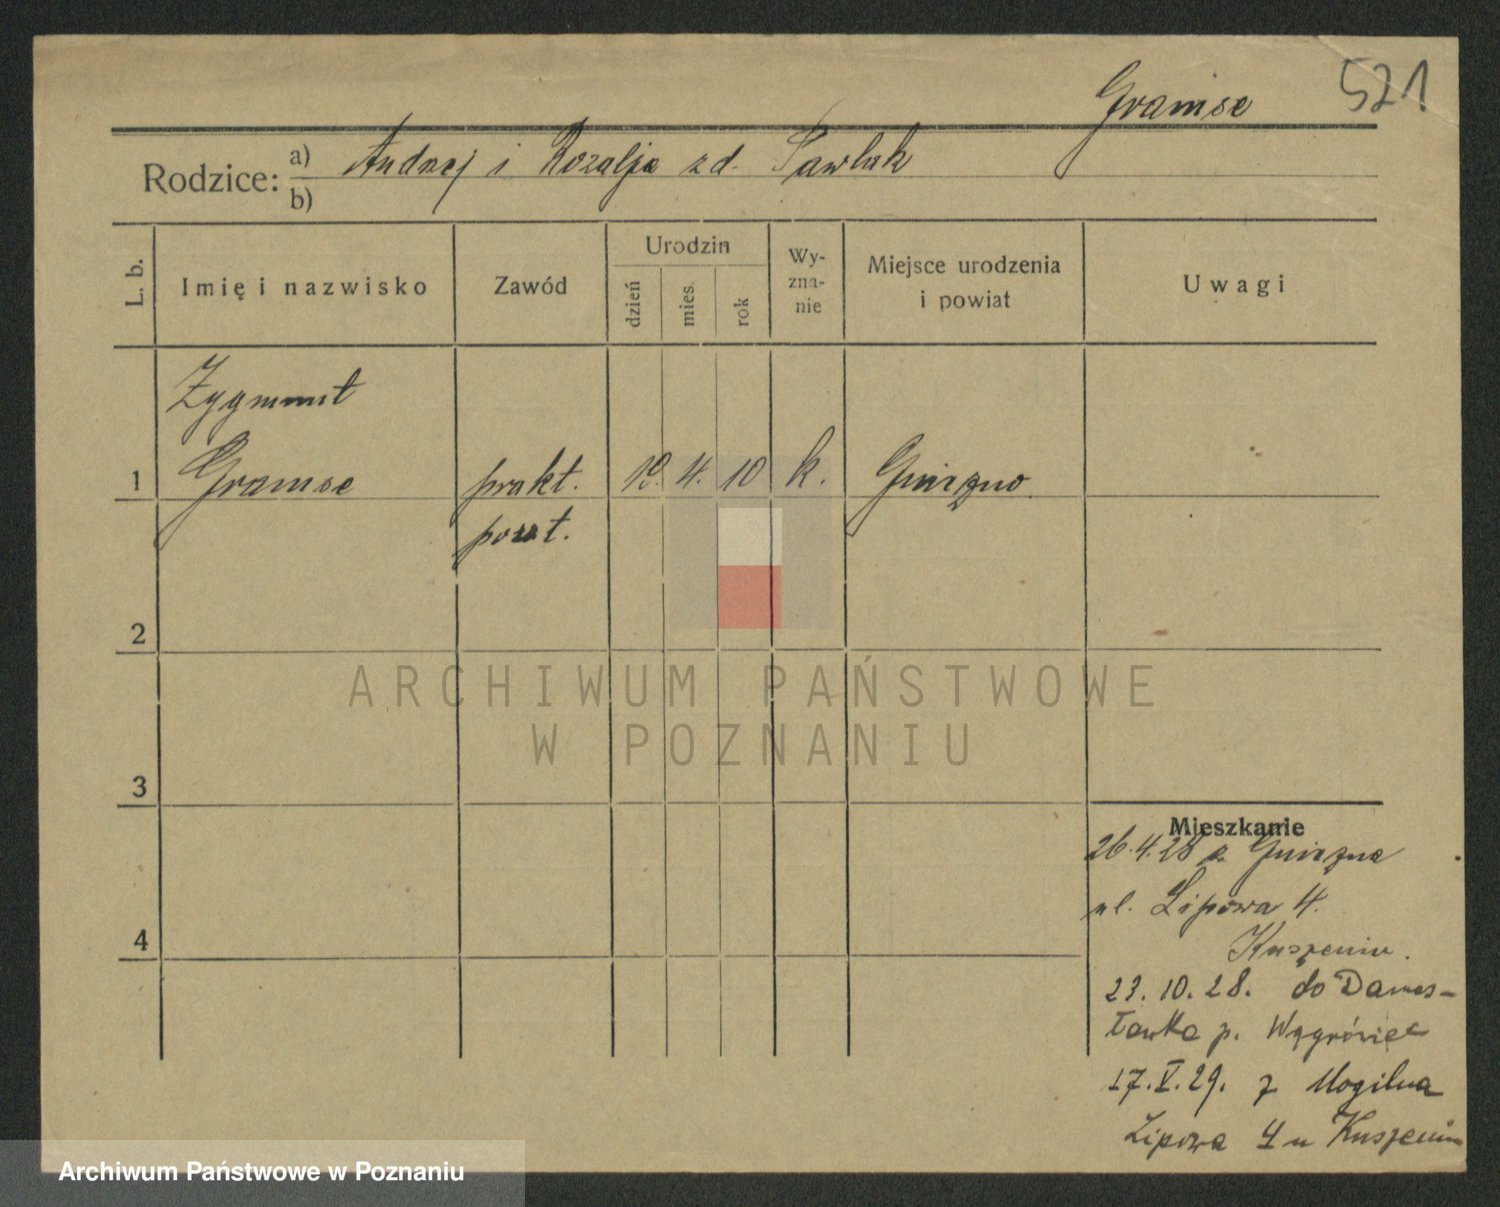 521
Gramse
Rodzice: a) Andrzej i Rozalja z d. Pawlak
b)
L. b. Imię i nazwisko Zawód Urodzin dzień mies. rok Wy-zna-nie Miejsce urodzenia i powiat Uwagi
Zygmunt
1 Gramse prakt. 19. 4. 10 k. Gniezno.
poszt.
2
3
4
Mieszkanie
26.4.28 z Gniezna
ul. Lipowa 4.
23.10.28. do Damas-
ławka p. Wągrówiec
17.V.29. z Mogilna
Lipowa 4 u
ARCHIWUM PAŃSTWOWE
W POZNANIU
Archiwum Państwowe w Poznaniu